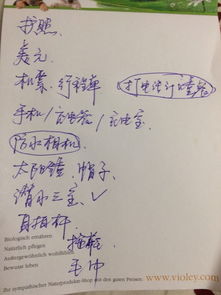 护照
美元
机票、行程单 打电话订睡房
手机/充电器/充电宝
防水相机
太阳镜、帽子、
潜水三宝、✓
自拍杆
拖鞋
毛巾
Biologisch ernähren
Natürlich pflegen
Außergewöhnlich wohlfühlen
Bewusst leben
Ihr sympathischer Naturprodukte-Shop mit den guten Preisen
www.violey.com